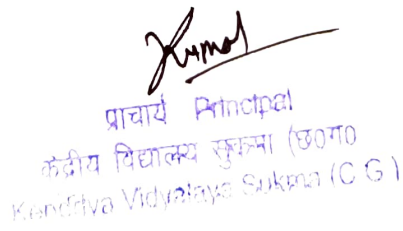 Kumar
प्राचार्य Principal
केंद्रीय विद्यालय सुकमा (छ०ग०
Kendriya Vidyalaya Sukma (C G)